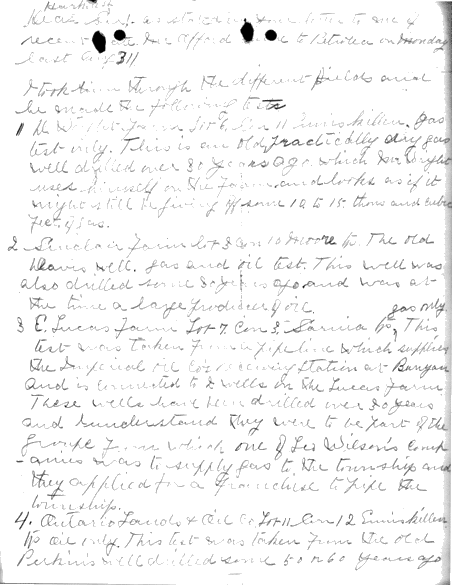 Dear Sir: as stated in your letter to one of
recent date Mr Afford came to Petrolea on Monday
last Aug 31
I took him through the different fields and
he made the following tests
1 D. Wright Farm Lot 6 Con 11 Enniskillen. Gas
test only. This is an old practically dry gas
well drilled over 30 years ago. which Mr Wright
uses himself on the Farm and looks as if it
might still be giving off some 10 to 15. thousand cubic
feet of gas.
2 Sinclair Farm Lot 2 Con 10 Moore tp. The old
well. gas and oil test. This well was
also drilled some 30 years ago and was at
the time a large producer of oil.
gas only
3 E. Lucas Farm Lot 7 Con 3. Sarnia tp, This
test was taken from a pipe line which supplies
the Imperial Oil Co receiving station at Bunyan
and is connected to 2 wells on the Lucas Farm
These wells have been drilled over 20 years
and I understand they were to be part of the
Groupe from which one of Les Wilson's Comp
-anies was to supply gas to the township and
they applied for a Franchise to pipe the
township.
4. Ontario Lands & Oil Co, Lot 11 Con 12 Enniskillen
tp oil only. This test was taken from the old
Perkins well drilled some 50 or 60 years ago